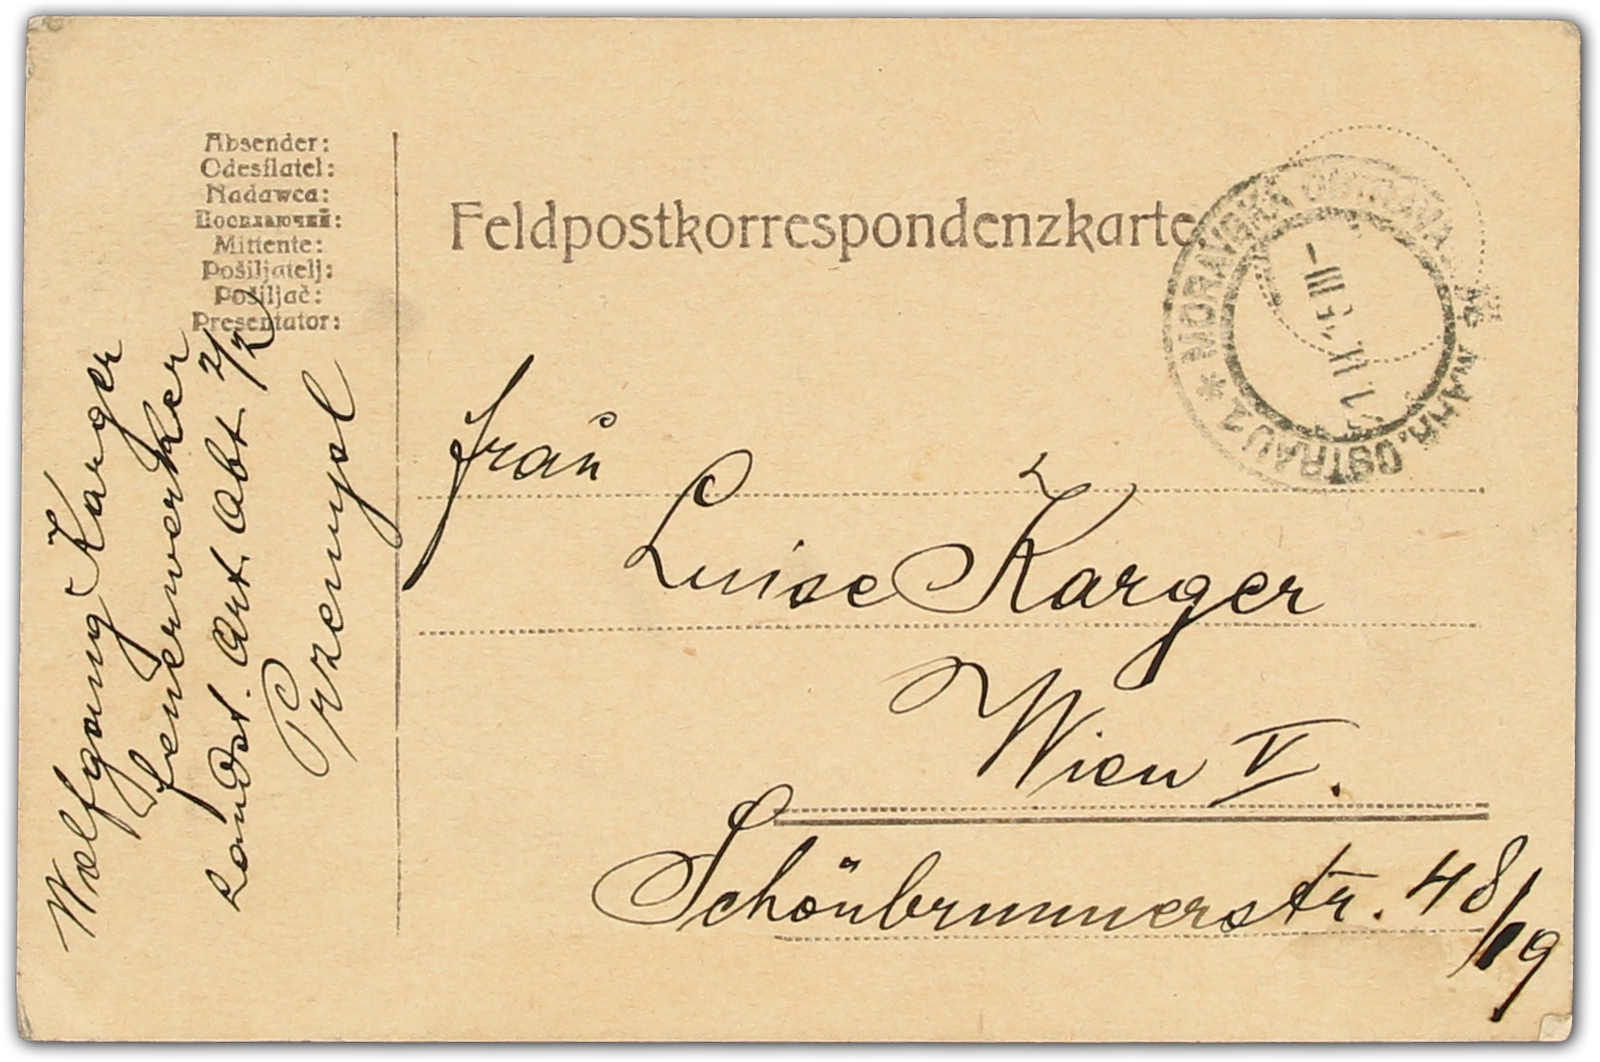 Absender:
Odesílatel:
Nadawca:
Посилаючий:
Mittente:
Pošiljatelj:
Pošiljač:
Presentator:
Wolfgang Karger
Feuerwerker
Landst. Art. Abt. 2/2
Przemysl
Feldpostkorrespondenzkarte
* MORAVSKÁ OSTRAVA
MÄHR. OSTRAU 1
IX 15 III–
Frau
Luise Karger
Wien V.
Schönbrunnerstr. 48/19